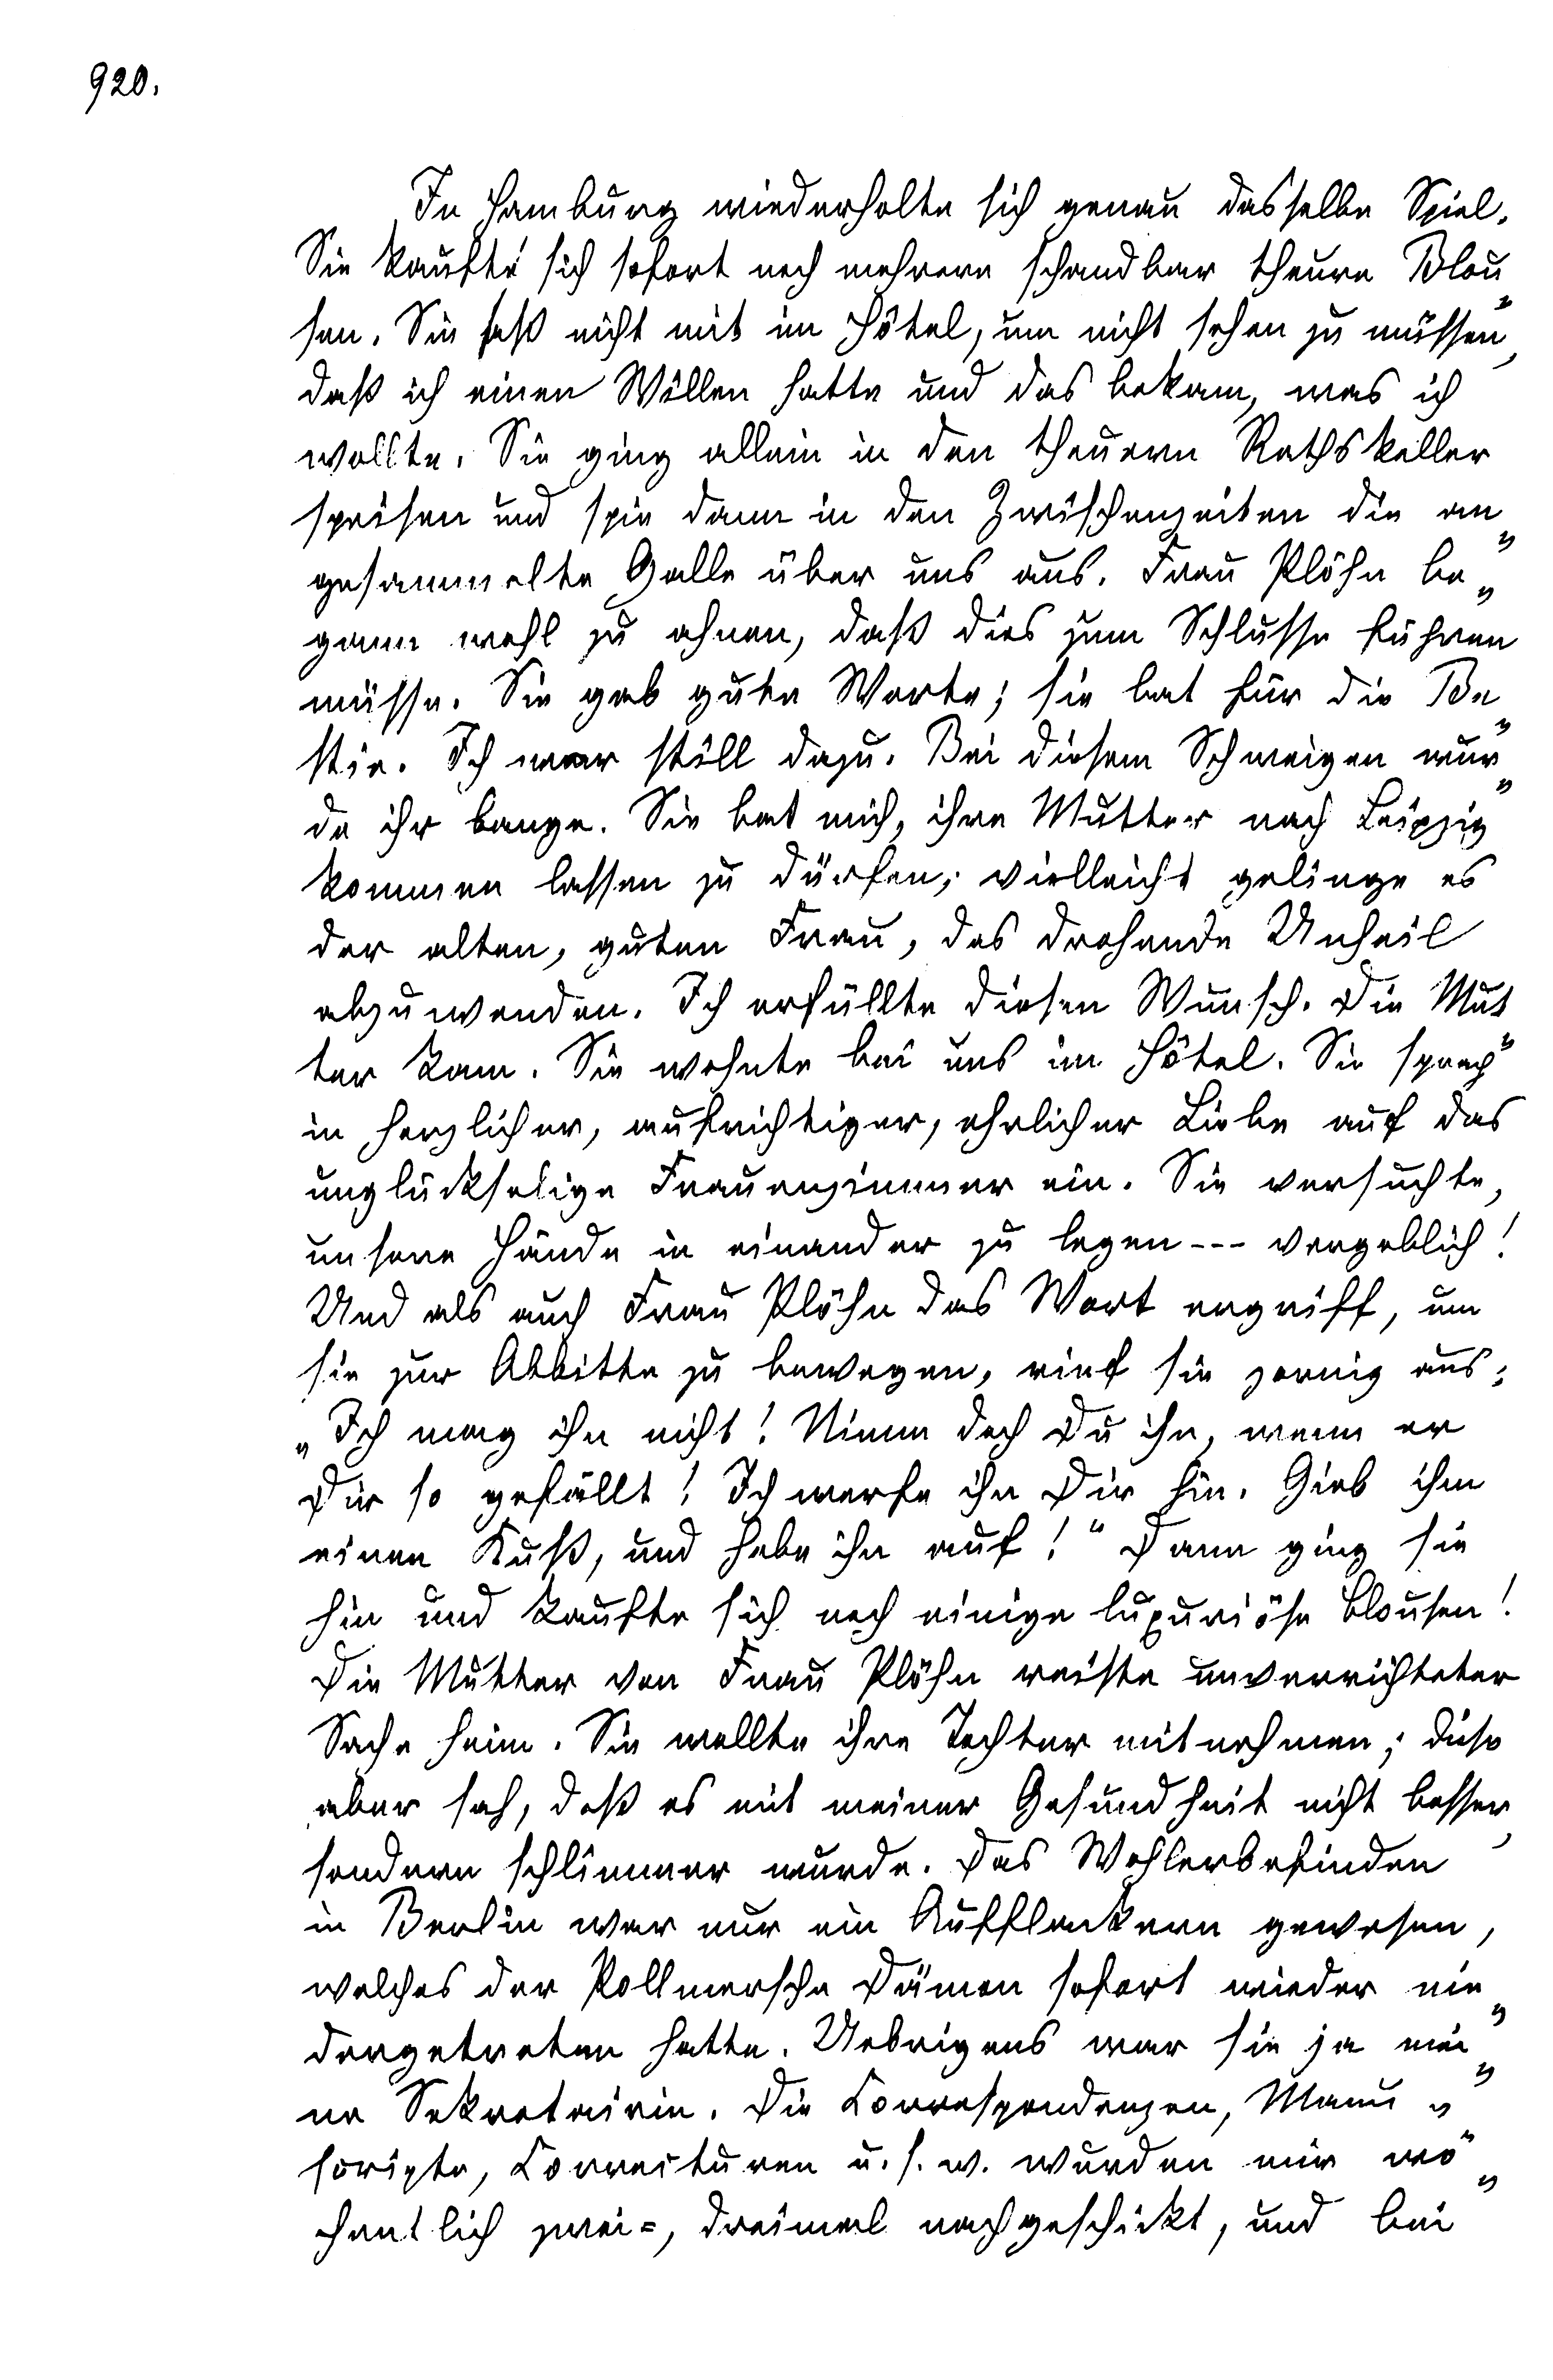 920.
In Hamburg wiederholte sich genau dasselbe Spiel.
Sie kaufte sich sofort noch mehrere schandbar theure Blou„
sen. Sie saß nicht mit im Hôtel, um nicht sehen zu müssen,
daß ich einen Willen hatte und das bekam, was ich
wollte. Sie ging allein in den theuern Rathskeller
speisen und spie dann in den Zwischenzeiten die an„
gesammelte Galle über uns aus. Frau Plöhn be„
gann wohl zu ahnen, daß dies zum Schlusse führen
müsse. Sie gab gute Worte; sie bat für die Be„
stie. Ich war still dazu. Bei diesem Schweigen wur„
de ihr bange. Sie bat mich, ihre Mutter nach Leipzig
kommen lassen zu dürfen; vielleicht gelinge es
der alten, guten Frau, das drohende Unheil
abzuwenden. Ich erfüllte diesen Wunsch. Die Mut„
ter kam. Sie wohnte bei uns im Hôtel. Sie sprach
in herzlicher, aufrichtiger, ehrlicher Liebe auf das
unglückselige Frauenzimmer ein. Sie versuchte,
unsere Hände in einander zu legen--- vergeblich!
Und als auch Frau Plöhn das Wort ergriff, um
sie zur Abbitte zu bewegen, rief sie zornig aus:
„Ich mag ihn nicht! Nimm doch Du ihn, wenn er
Dir so gefällt! Ich werfe ihn Dir hin. Gieb ihm
einen Kuß, und hebe ihn auf!“ Dann ging sie
hin und kaufte sich noch einige luxuriöse Blousen!
Die Mutter von Frau Plöhn reiste unverrichteter
Sache heim. Sie wollte ihre Tochter mitnehmen; diese
aber sah, daß es mit meiner Gesundheit nicht besser,
sondern schlimmer wurde. Das Wohlerbefinden
in Berlin war nur ein Aufflackern gewesen,
welches der Pollmersche Dämon sofort wieder nie„
dergetreten hatte. Uebrigens war sie ja mei„
ne Sekretairin. Die Correspondenzen, Manu„
scripte, Correcturen u. s. w. wurden mir wö„
chentlich zwei=, dreimal nachgeschickt, und bei